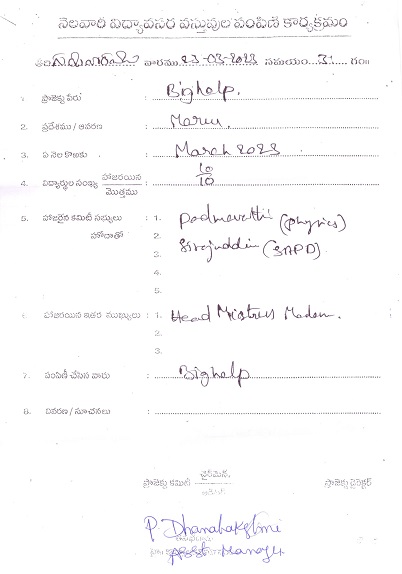 నెలవారి విద్యావసర వస్తువుల పంపిణి కార్యక్రమం
తేది గురువారము వారము 23-03-2023 సమయం 3 గం॥
1. ప్రాజెక్టు పేరు : Bighelp.
2. ప్రదేశము / ఆవరణ :
3. ఏ నెల కొఱకు : March 2023
4. విద్యార్థుల సంఖ్య హాజరయిన / మొత్తము : 10/10
5. హాజరైన కమిటీ సభ్యులు హోదాతో : 1. Padmavathi (Physics)
2. Sirajuddin (SAPD)
3.
4.
5.
6. హాజరయిన ఇతర ముఖ్యులు : 1. Head Mistress Madam.
2.
3.
7. పంపిణీ చేసిన వారు : Bighelp
8. వివరణ / సూచనలు :
చైర్మెన్,
ప్రాజెక్టు కమిటీ ప్రాజెక్టు డైరెక్టర్
P. Dhanalakshmi
Asst Manager